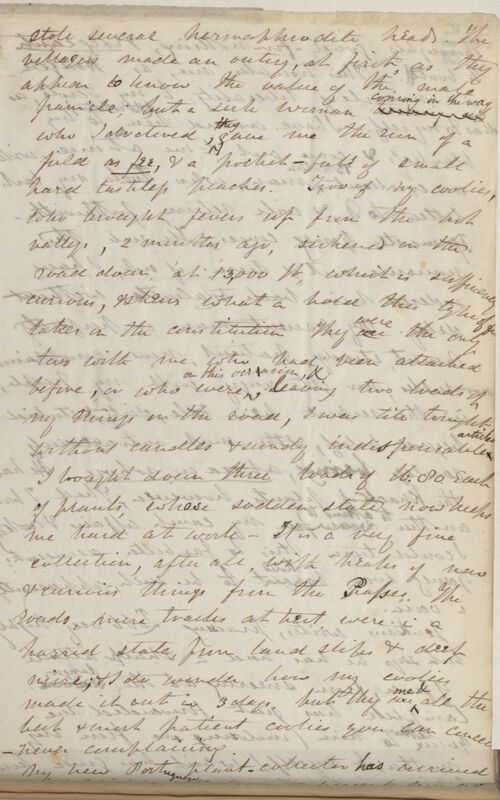 stole several hermaphrodite heads. The
villagers made an outcry, at first, as they
appear to know the value of the male
panicle: but a sick woman coming in the way
who I doctored, they gave me the run of a
field as fee, & a pocket-full of small
hard tasteless peaches. Two of my coolies,
who brought fevers up from the hot
valleys, 2 months ago, sickened on the
road down at 13,000 ft, which is sufficiently
curious, & shews what a hold this typhus
takes in the constitution They were the only
two with me who had been attacked
before, or who were on this occasion, & leaving two loads of
my things on the road, I was till tonight
without candles & sundry indispensable articles
I brought down three loads of lb. 80 each
of plants, whose sodden state now keeps
me hard at work – It is a very fine
collection, after all, with heaps of new
& curious things from the Passes. The
roads, mere tracks at best were in a
horrid state from land slips & deep
mire; & I do wonder how my coolies
made it out in 3 days. but they are all the
best & most patient coolies you can conceive
– never complaining
My new Portuguese plant-collector has arrived